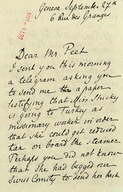 Geneva September 27th
6 Rue des Granges
Dear Mr Peet
I send you this morning
a telegram asking you
to send me a paper
testifying that Miss Shirley
is going to Turkey as
missionary worker in order
that she could get reduced
fare on board the steamer.
Perhaps you did not know
that she had begged our
Swiss Comity to send her back